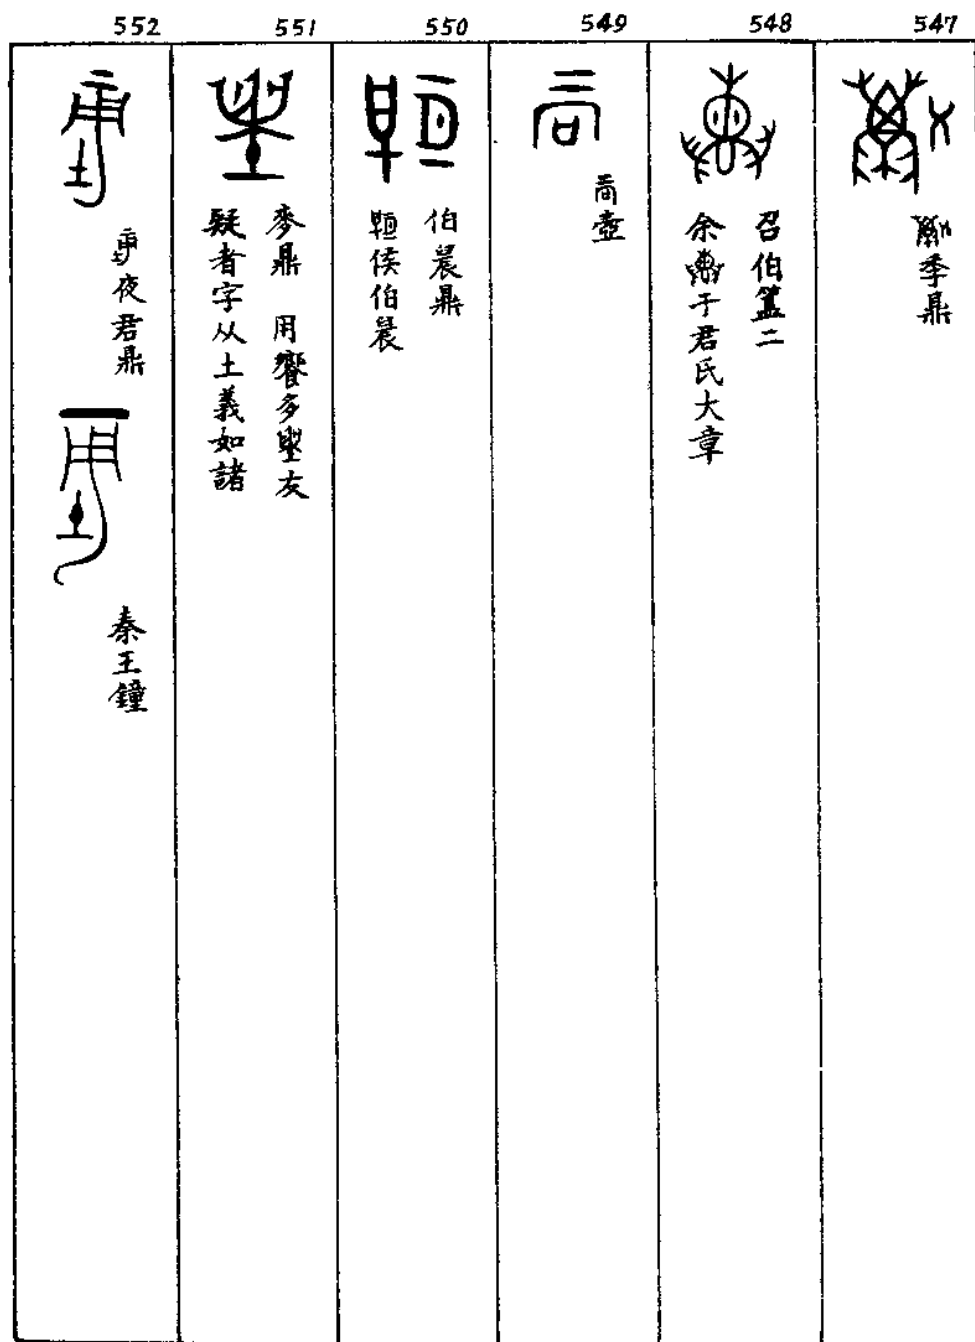 547
季鼎
548
召伯簋二
余于君氏大章
549
壺
550
伯晨鼎
侯伯晨
551
麥鼎 用饗多友
疑者字从土義如諸
552
夜君鼎
秦王鐘